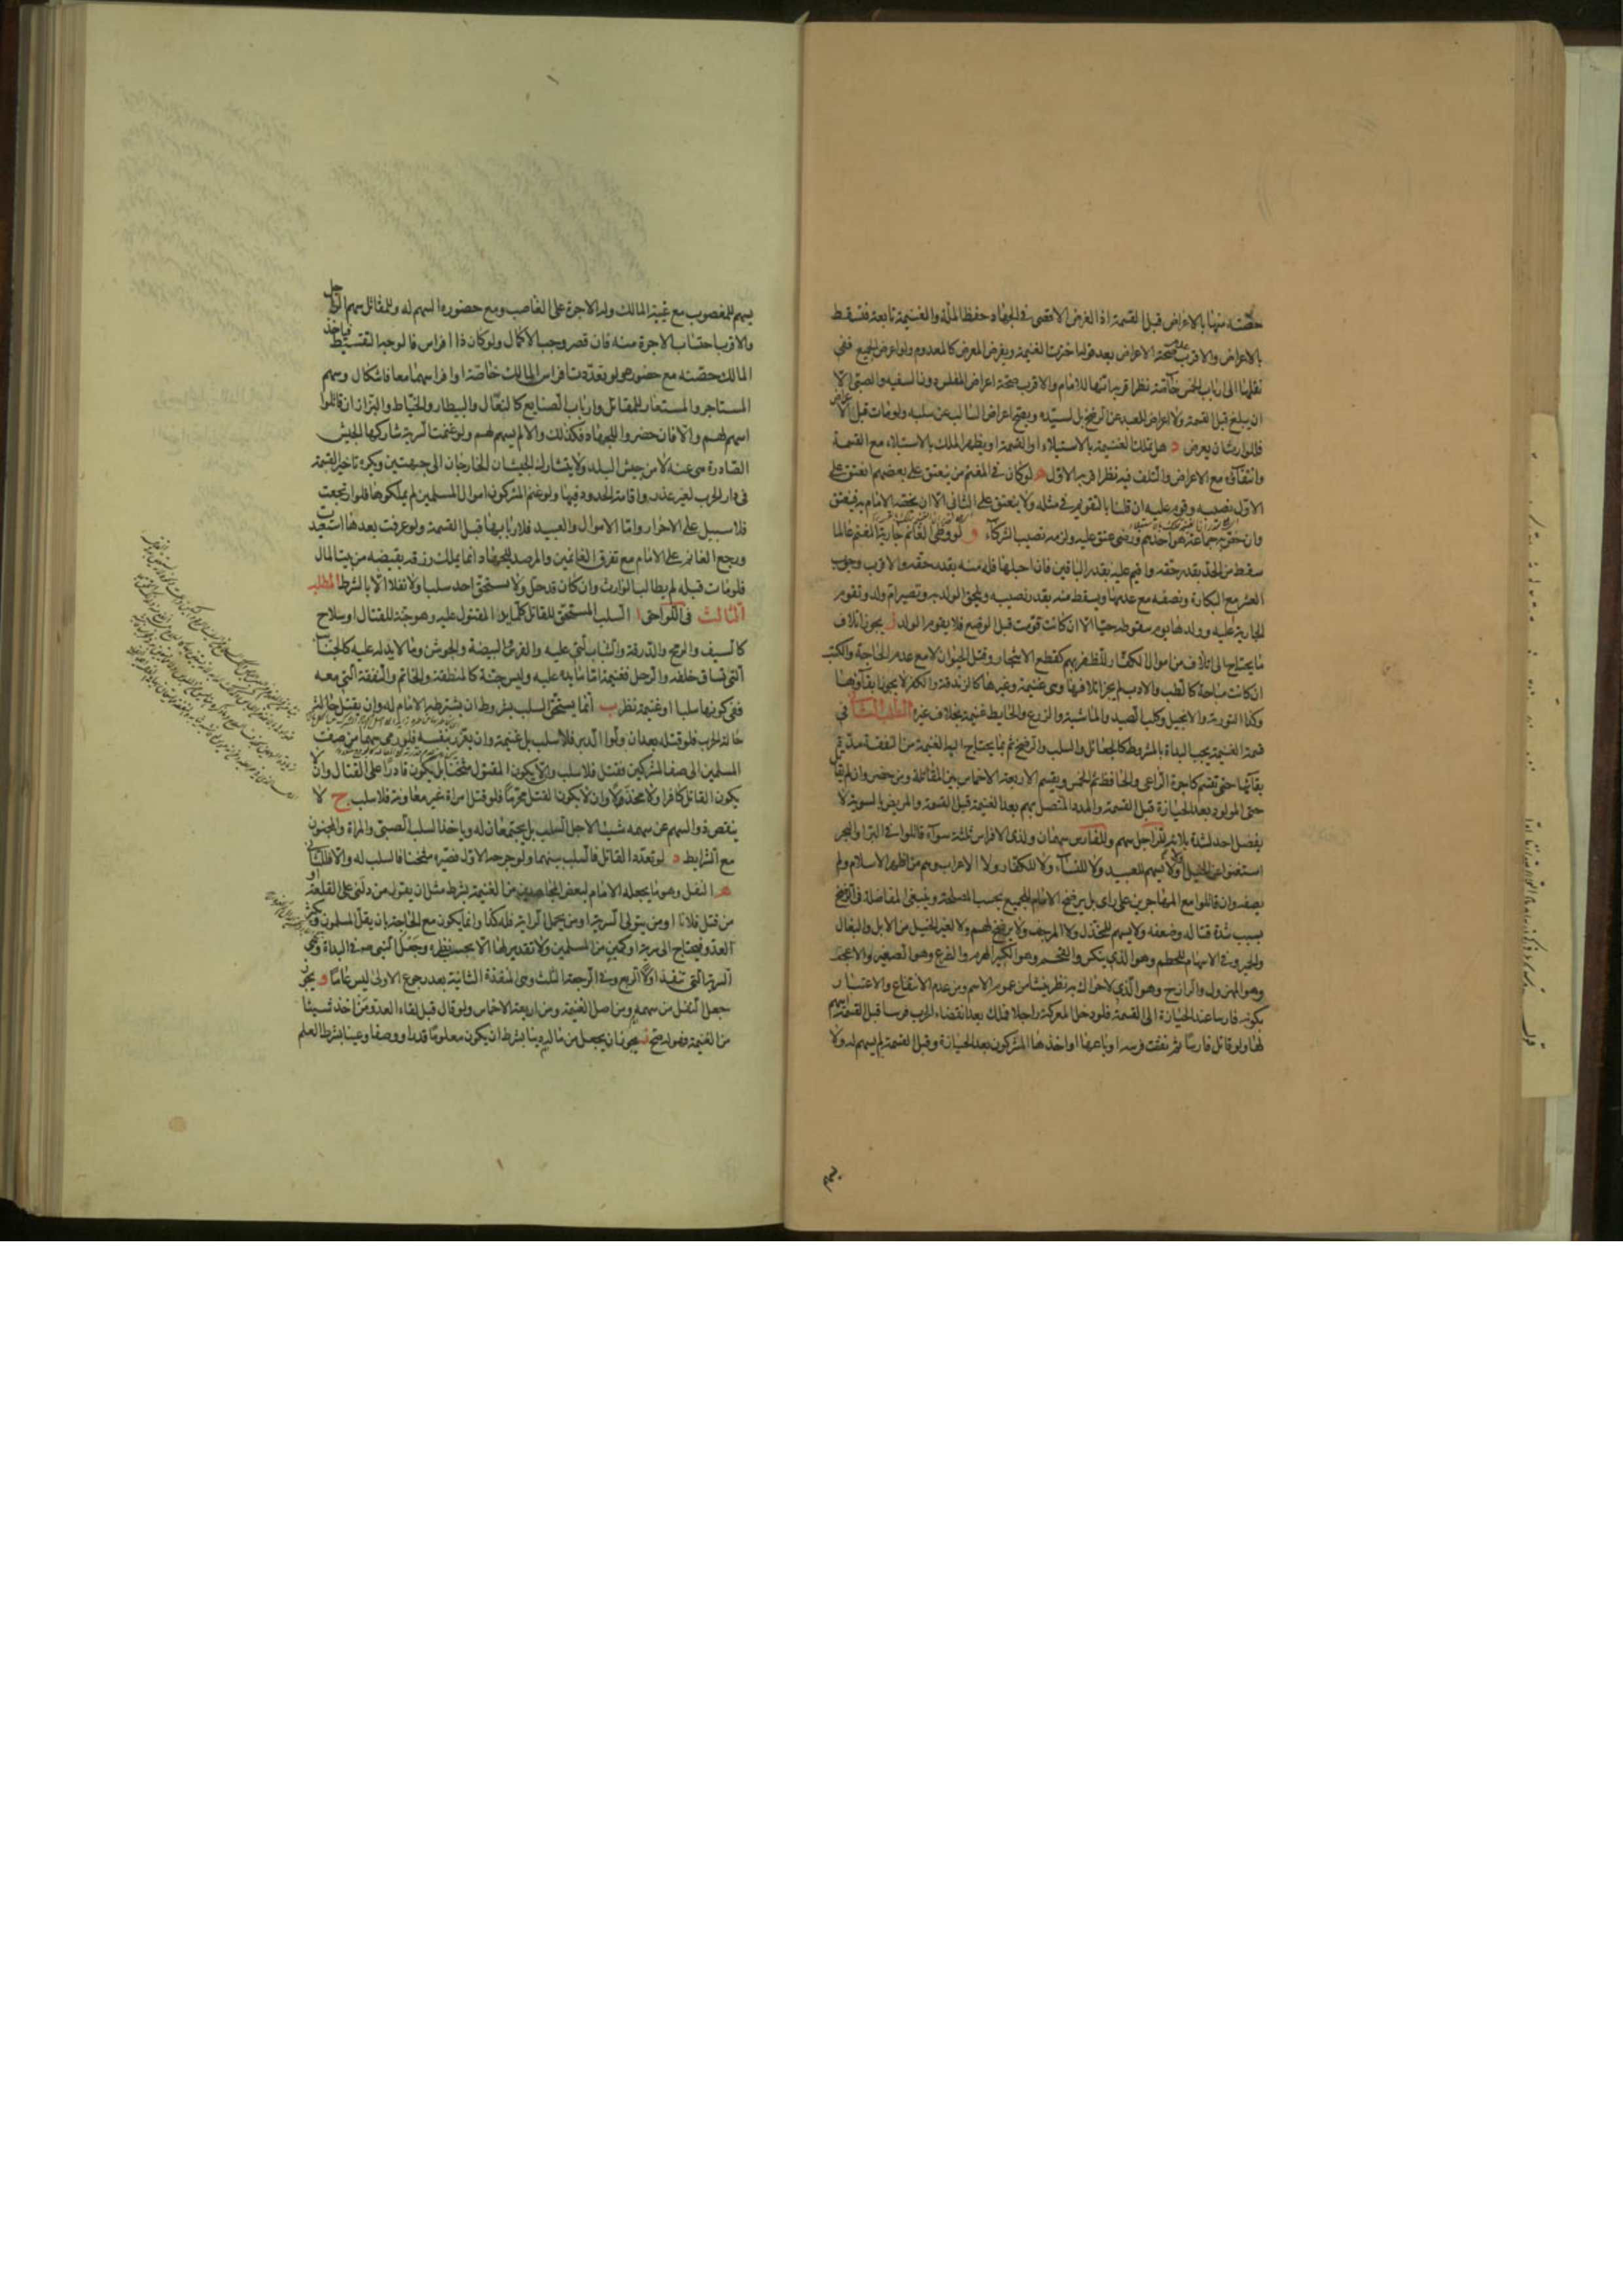 حصته منها بالاعراض قبل القسمة اذ الغرض الاقصى في الجهاد حفظ الملة والغنيمة تابعة فتسقط
بالاعراض والاقرب صحة الاعراض بعد قوله اخترت الغنيمة ويفرض المعرض كالمعدوم ولو اعرض الجميع ففي
نقلها الى ارباب الخمس خاصة نظر اقربه انها للامام والاقرب صحة اعراض المفلس دون السفيه والصبي الا
ان يبلغ قبل القسمة ولا اعراض للعبد عن الرضخ بل لسيده ويصح اعراض السالب عن سلبه ولو مات قبل الاعراض
فللوارث ان يعرض د هل تملك الغنيمة بالاستيلاء او القسمة او يظهر الملك بالاستيلاء مع القسمة
وانتفاؤه مع الاعراض والتلف فيه نظر اقربه الاول ه لو كان في المغنم من ينعتق على بعضهم انعتق على
الاول نصيبه وقوم عليه ان قلنا بالتقويم في مثله ولا ينعتق على الثاني الا ان يخصه الامام به فينعتق
وان خص به جماعة هو احدهم ورضي عتق عليه ولزمه نصيب الشركاء و لو وطئ الغانم جارية المغنم عالما
سقط من الحد بقدر حقه واقيم عليه بقدر الباقين فان احبلها فله منه بقدر حقه والاقرب وجوب
العشر مع البكارة ونصفه مع عدمها ويسقط منه بقدر نصيبه ويلحق الولد به وتصير ام ولد وتقوم
الجارية عليه وولدها يوم سقوطه حيا الا ان كانت قومت قبل الوضع فلا يقوم الولد ز يجوز اتلاف
ما يحتاج الى اتلافه من اموال الكفار للظفر بهم كقطع الاشجار وقتل الحيوان لا مع عدم الحاجة والكتب
ان كانت مباحة كالطب والادب لم يجز اتلافها وهي غنيمة وغيرها كالزندقة والكفر لا يجوز ابقاؤها
وكذا التورية والانجيل وكلب الصيد والماشية والزرع والحايط غنيمة بخلاف غيره المطلب الثاني في
قسمة الغنيمة يجب البداءة بالمشروط كالجعائل والسلب والرضخ ثم بما يحتاج اليه الغنيمة من النفقة مدة
بقائها حتى تقسم كاجرة الراعي والحافظ ثم الخمس ويقسم الاربعة الاخماس بين المقاتلة ومن حضر وان لم يقاتل
حتى المولود بعد الحيازة قبل القسمة والمدد المتصل بهم بعد الغنيمة قبل القسمة والمريض بالسوية لا
يفضل احد لشدة بلائه للراجل سهم وللفارس سهمان ولذي الافراس ثلثة سواء قاتلوا في البر او البحر
استغنوا عن الخيل او لا ولا يسهم للعبيد ولا للنساء ولا للكفار ولا الاعراب وهم من اظهر الاسلام ولم
يصفه وان قاتلوا مع المهاجرين على راي بل يرضخ الامام للجميع بحسب المصلحة وينبغي المفاضلة في الرضخ
بسبب شدة قتاله وضعفه ولا يسهم للمخذل ولا المرجف ولا يرضخ لهم ولا لغير الخيل من الابل والبغال
والحمير وفي الاسهام للحطم وهو الذي ينكسر والقحم وهو الكبير الهرم والضرع وهو الصغير والاعجف
وهو المهزول والرازح وهو الذي لا حراك به نظر ينشا من عموم الاسم ومن عدم الانتفاع والاعتبار
بكونه فارسا عند الحيازة الى القسمة فلو دخل المعركة راجلا فملك بعد انقضاء الحرب فرسا قبل القسمة اسهم
لها ولو قاتل فارسا ثم نفقت فرسه او باعها او اخذها المشركون بعد الحيازة وقبل القسمة لم يسهم له ولا
يسهم
يسهم للمغصوب مع غيبة المالك وله الاجرة على الغاصب ومع حضوره السهم له وللمقاتل سهم الراجل
والاقرب احتساب الاجرة منه فان قصر وجب الاكمال ولو كان ذا افراس فالوجه التقسيط فياخذ
المالك حصته مع حضوره ولو تعددت افراس المالك خاصة او افراسهما معا فاشكال وسهم
المستاجر والمستعار للمقاتل وارباب الصنايع كالبقال والبيطار والخياط والبزاز ان قاتلوا
اسهم لهم والا فان حضروا للجهاد فكذلك والا لم يسهم لهم ولو غنمت السرية شاركها الجيش
الصادرة هي عنه لا من جيش البلد ولا يتشارك الجيشان الخارجان الى جهتين ويكره تاخير القسمة
في دار الحرب لغير عذر واقامة الحدود فيها ولو غنم المشركون اموال المسلمين لم يملكوها فلو ارتجعت
فلا سبيل على الاحرار واما الاموال والعبيد فلاربابها قبل القسمة ولو عرفت بعدها استعيدت
ورجع الغانم على الامام مع تفرق الغانمين والمرصد للجهاد انما يملك رزقه بقبضه من بيت المال
فلو مات قبله لم يطالب الوارث وان كان قد حل ولا يستحق احد سلبا ولا نفلا الا بالشرط المطلب
الثالث في اللواحق ا السلب المستحق للقاتل كل ما يد المقتول عليه وهو جنة للقتال او سلاح
كالسيف والرمح والدرقة والثياب التي عليه والفرس والبيضة والجوشن وما لا يد له عليه كالجنائب
التي تساق خلفه والرحل فغنيمة اما ما يده عليه وليس جنة كالمنطقة والخاتم والنفقة التي معه
ففي كونها سلبا او غنيمة نظر ب انما يستحق السلب بشروط ان يشترطه الامام له وان يقتل حالة
حالة الحرب فلو قتله بعد ان ولوا الدبر فلا سلب بل غنيمة وان يغرر بنفسه فلو رمى سهما من صف
المسلمين الى صف المشركين فقتل فلا سلب والا يكون المقتول مثخنا بل يكون قادرا على القتال وان لا
يكون القاتل كافرا ولا مخذولا وان لا يكون القتل محرما فلو قتل امراة غير معاونة فلا سلب ج لا
ينقص ذو السهم عن سهمه شيئا لاجل السلب بل يجتمعان له وياخذ السلب الصبي والمراة والمجنون
مع الشرايط د لو تعدد القاتل فالسلب بينهما ولو جرحه الاول فصيره مثخنا فالسلب له والا فللثاني
ه النفل وهو ما يجعله الامام لبعض المجاهدين من الغنيمة بشرط مثل ان يقول من دلني على القلعة او
من قتل فلانا او من يتولى السرية او من يحمل الراية فله كذا وانما يكون مع الحاجة بان يقل المسلمون ويكثر
العدو فيحتاج الى سرية او كمين من المسلمين ولا تقدير لها الا بحسب نظره وجعل النبي ص في البداة وهي
السرية التي تنفذ اولا الربع وفي الرجعة الثلث وهي المنفذة الثانية بعد رجوع الاولى ليس عاما و يجوز
جعل النفل من سهمه ومن اصل الغنيمة ومن اربعة الاخماس ولو قال قبل لقاء العدو من اخذ شيئا
من الغنيمة فهو له صح ز يجوز ان يجعل من ماله دينا بشرط ان يكون معلوما قدرا ووصفا وعينا بشرط العلم